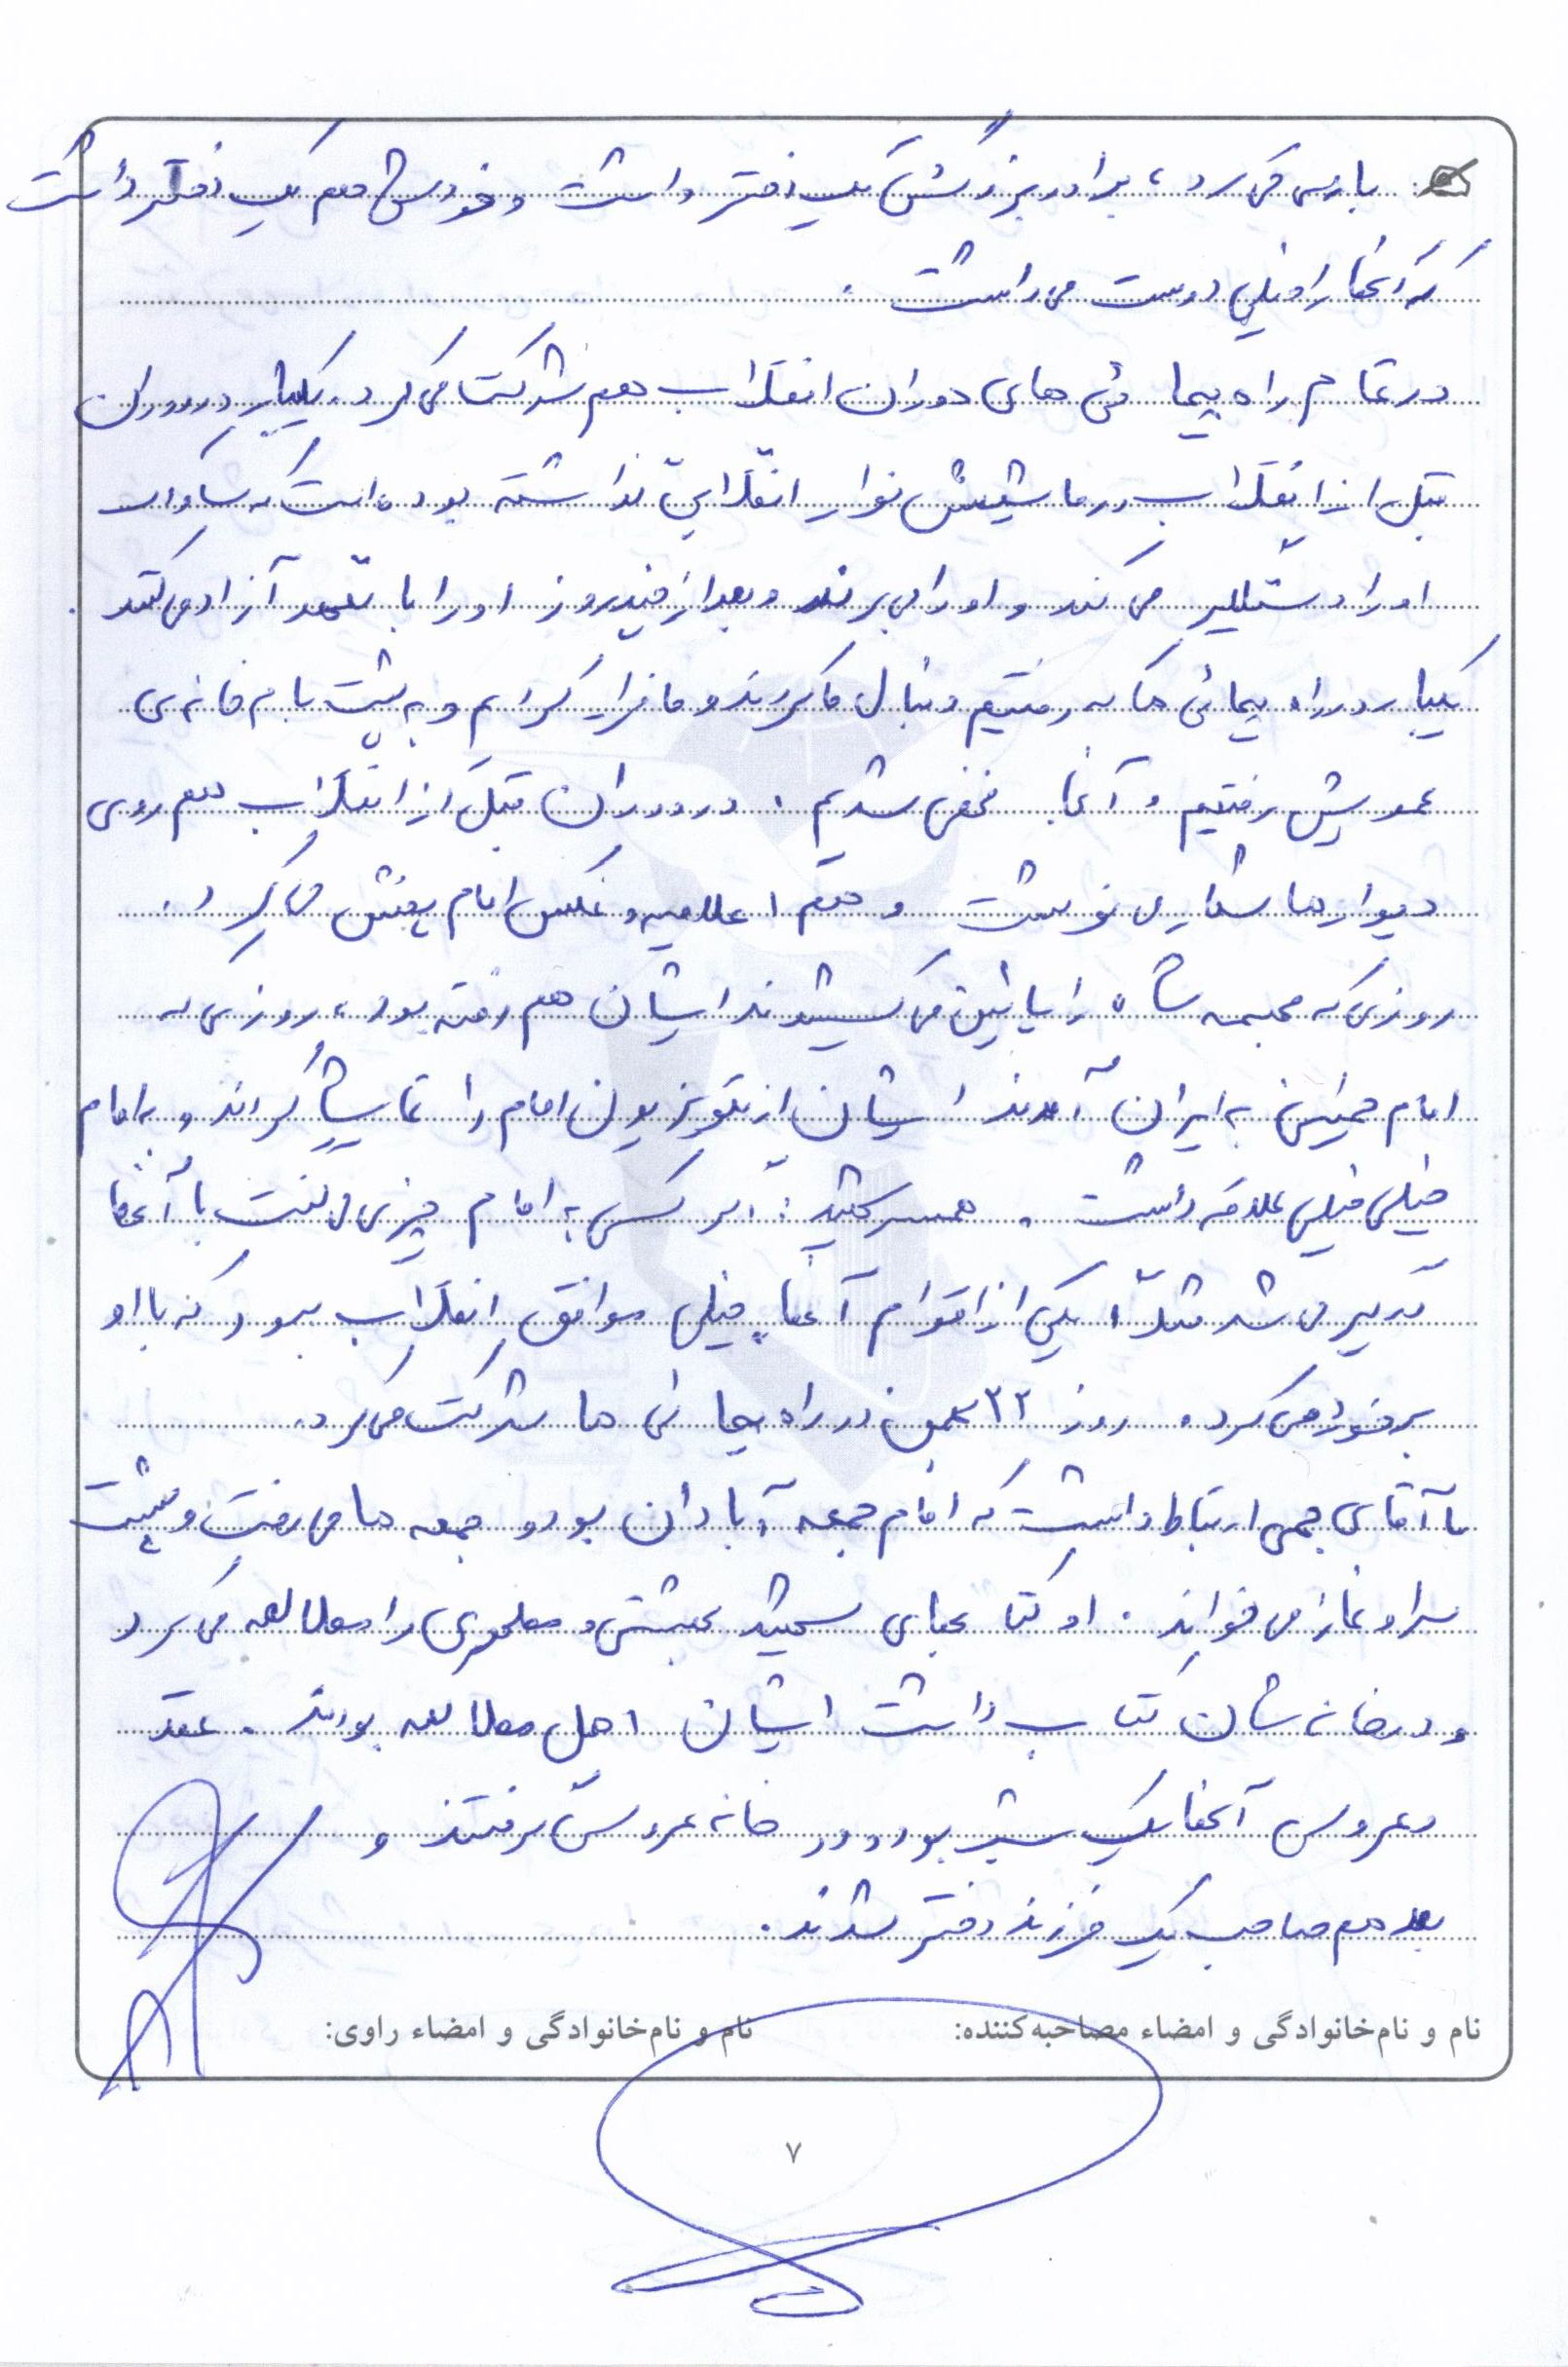 بازی می کرد، برادر بزرگش یک دختر داشت و خودش هم یک دختر داشت
که آنها را خیلی دوست می داشت.
در تمام راه پیما ئی های دوران انقلاب هم شرکت می کرد. یکبار در دوران
قبل از انقلاب در ماشینش نوار انقلابی گذاشته بوده است که ساواک
او را دستگیر می کند و او را می برند و بعد از چند روز او را با تعهد آزاد می کنند.
یکبار در راه پیمائی ها که رفتیم دنبال ما کردند و ما فرار کردیم و به پشت بام خانه ی
عمویش رفتیم و آنجا مخفی شدیم. در دوران قبل از انقلاب هم روی
دیوارها شعار می نوشت و هم اعلامیه و عکس امام پخش می کرد.
روزی که مجسمه شاه را پائین می کشیدند ایشان هم رفته بود، روزی که
امام خمینی به ایران آمدند ایشان از تلویزیون امام را تماشا کردند و به امام
خیلی خیلی علاقه داشت. همسر شهید: اگر کسی به امام چیزی می گفت با آنها
درگیر می شد مثلاً یکی از اقوام آنها خیلی موافق انقلاب نبود که با او
برخورد می کرد. روز ۲۲ بهمن در راه پیما ئی ها شرکت می کرد.
با آقای جمی ارتباط داشت که امام جمعه آبادان بود و جمعه ها می رفت و پشت
سر او نماز می خواند. او کتابهای شهید بهشتی و مطهری را مطالعه می کرد
و در خانه شان کتاب داشت ایشان اهل مطالعه بودند. عقد
و عروسی آنها یک شب بود و در خانه عروسی گرفتند و
بعد هم صاحب یک فرزند دختر شدند.
نام و نام‌خانوادگی و امضاء مصاحبه‌کننده: نام و نام‌خانوادگی و امضاء راوی:
۷